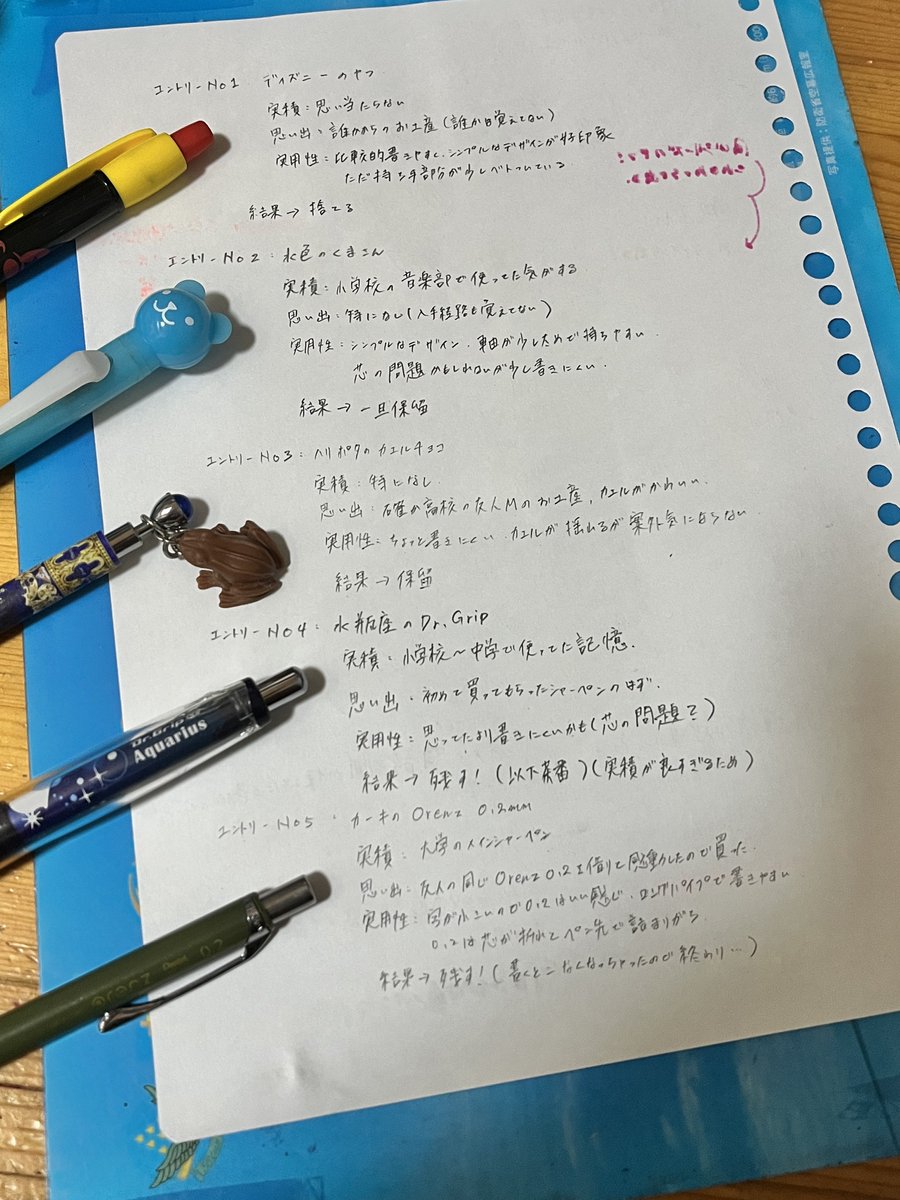 エントリーNo1 ディズニーのヤツ
実積：思い当たらない
思い出：誰かからのお土産(誰か覚えてない)
実用性：比較的書きやすく、シンプルなデザインが好印象
ただ持ち手部分が少しベトついている
結果→捨てる
エントリーNo2：水色のくまさん
実積：小学校の音楽部で使ってた気がする
思い出：特になし(入手経路も覚えてない)
実用性：シンプルなデザイン、軸が少し太めで持ちやすい.
芯の問題かもしれないが少し書きにくい.
結果→一旦保留
エントリーNo3：ハリポタのカエルチョコ
実積：特になし.
思い出：確か高校の友人Mのお土産,カエルがかわいい.
実用性：ちょっと書きにくい.カエルが揺れるが案外気にならない
結果→保留
エントリーNo4：水瓶座のDr.Grip
実積：小学校～中学で使ってた記憶.
思い出：初めて買ってもらったシャーペンのはず.
実用性：思ってたより書きにくいかも(芯の問題？)
結果→残す！(以下茶番)(実積が良すぎるため)
エントリーNo5：カーキのOrenz 0.2mm
実積：大学のメインシャーペン
思い出：友人の同じOrenz0.2を借りて感動したので買った.
実用性：字が小さいので0.2はいい感じ.ロングパイプで書きやすい
0.2は芯が折れてペン先で詰まりがち
結果→残す！(書くとこなくなっちゃったので終わり…)
Dr.Grip
Aquarius
写真提供：防衛省空幕広報室